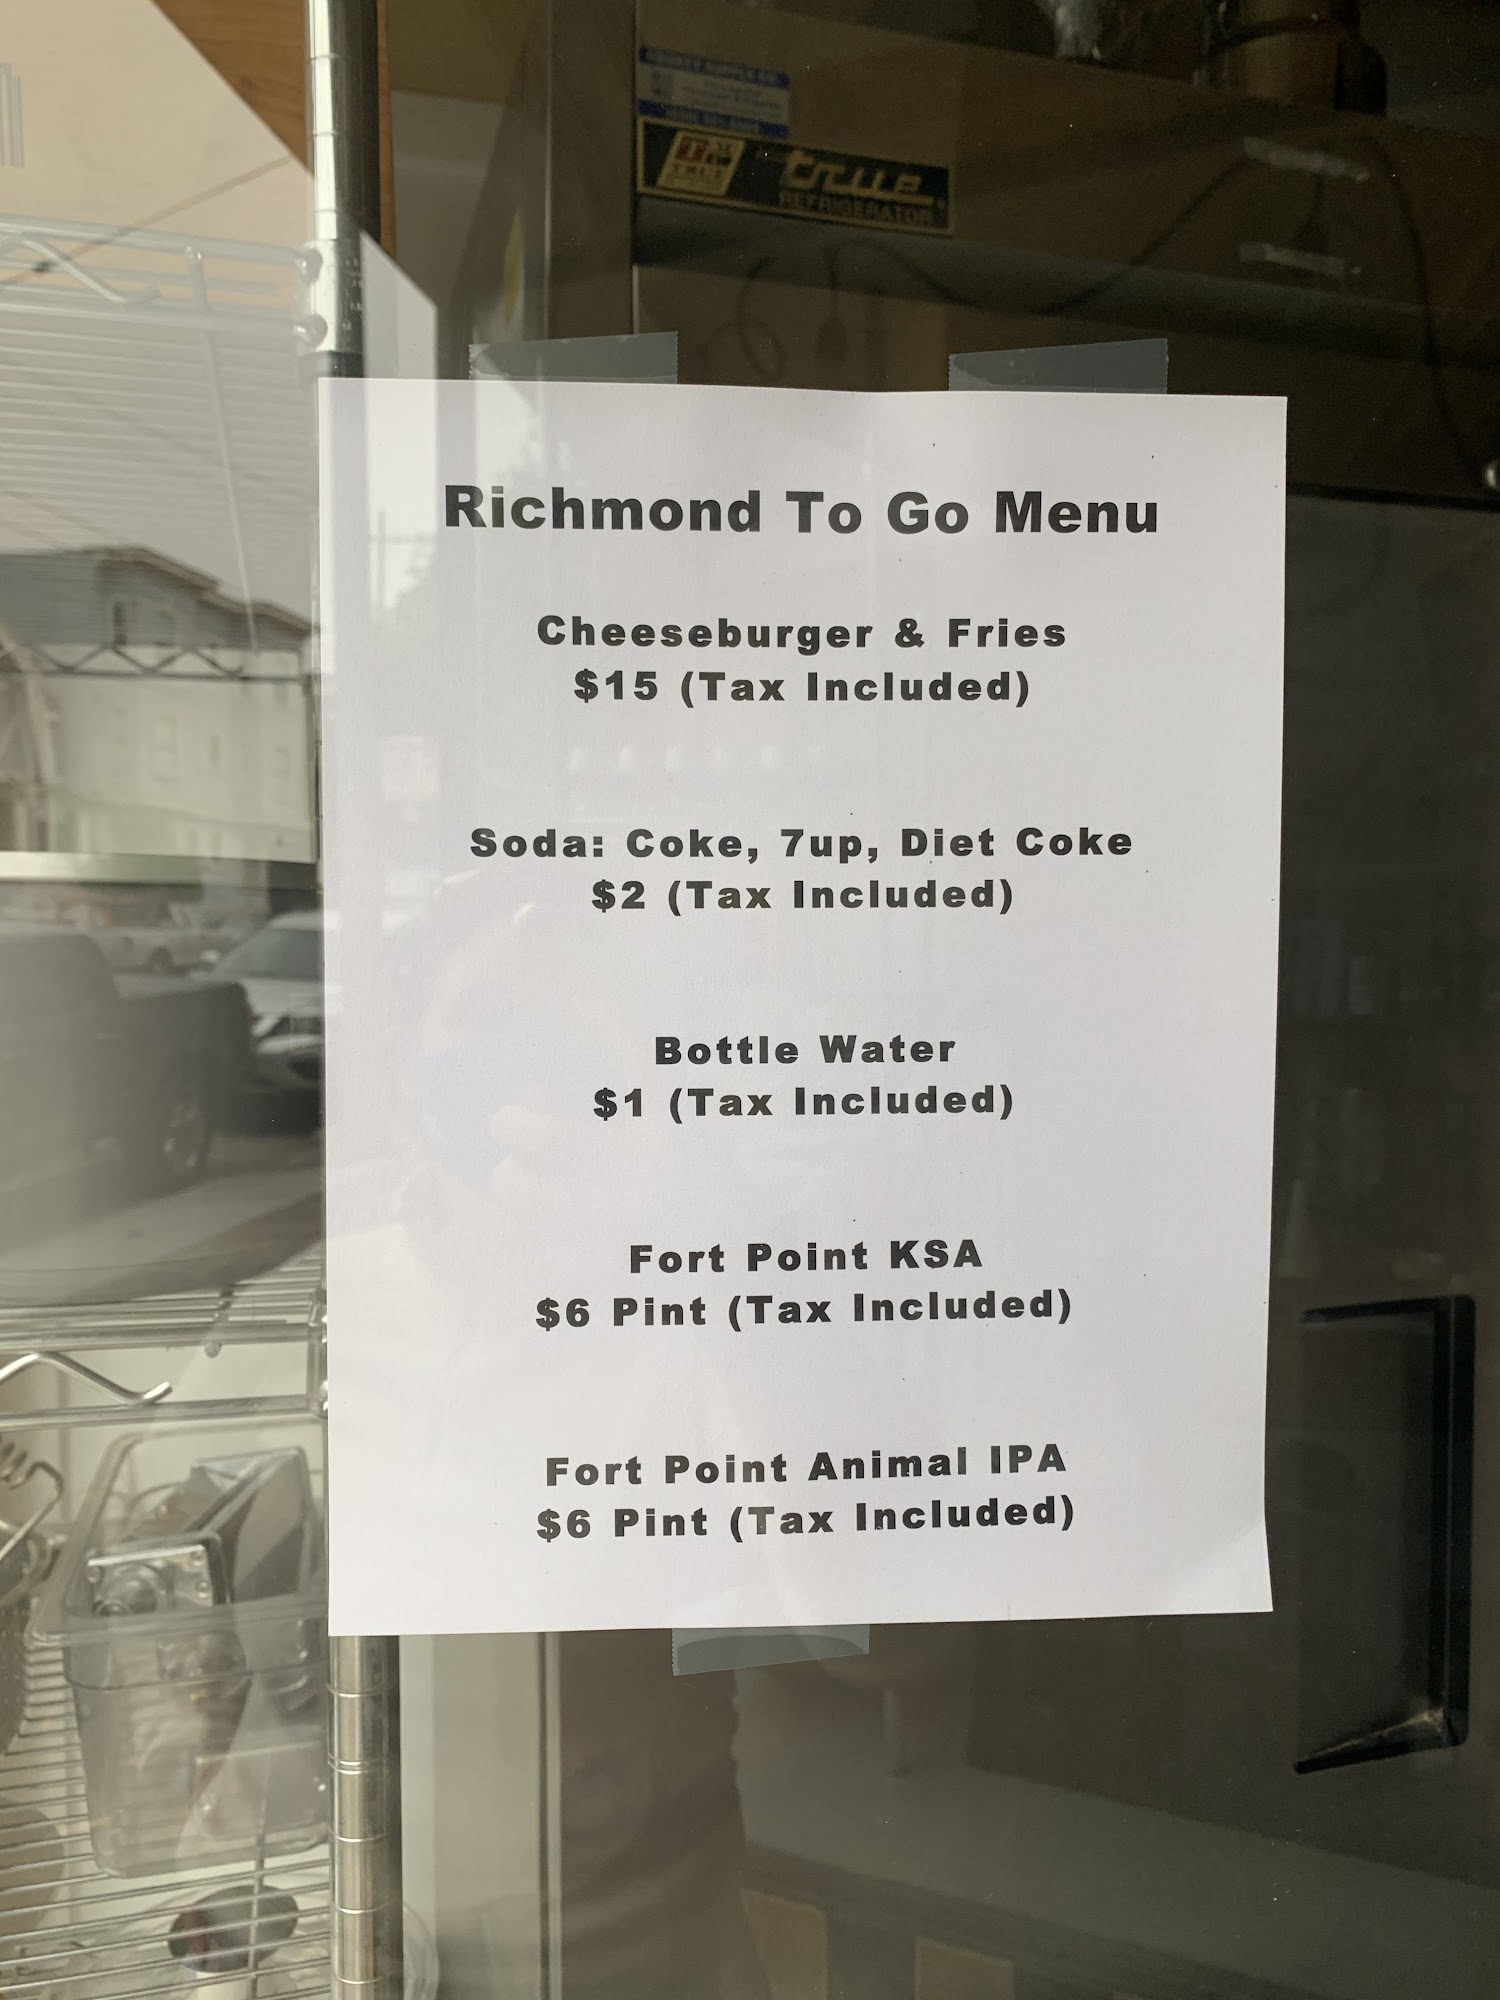 true
REFRIGERATOR
Richmond To Go Menu
Cheeseburger & Fries
$15 (Tax Included)
Soda: Coke, 7up, Diet Coke
$2 (Tax Included)
Bottle Water
$1 (Tax Included)
Fort Point KSA
$6 Pint (Tax Included)
Fort Point Animal IPA
$6 Pint (Tax Included)